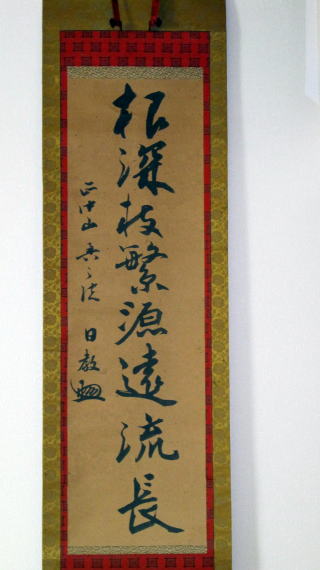 根深枝繁源遠流長
正中山 日教